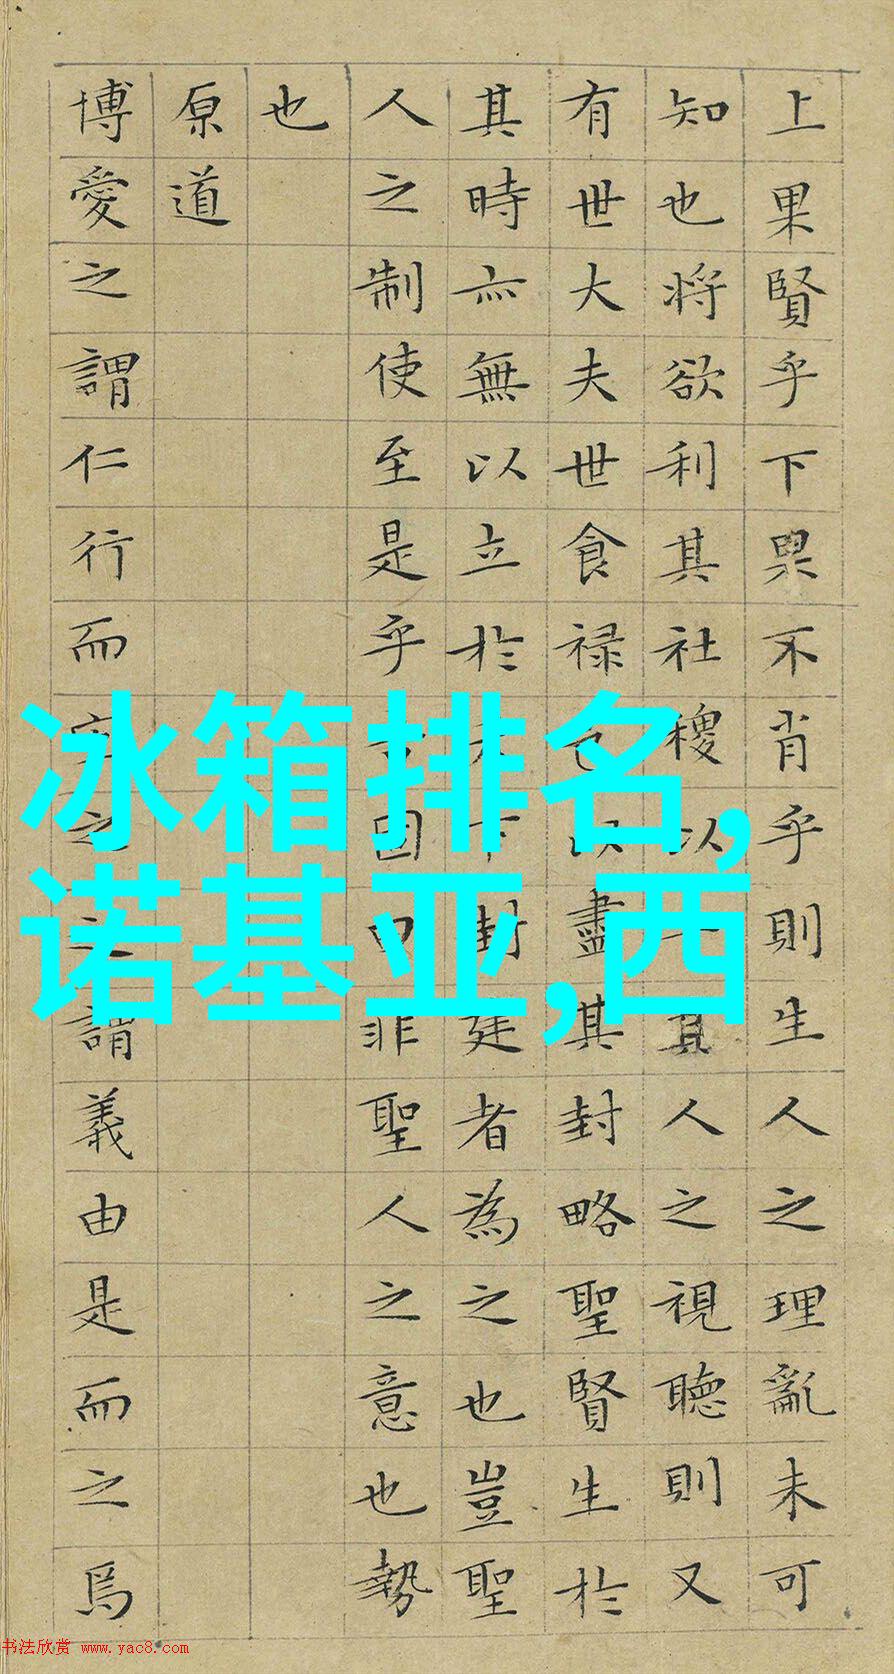 上果賢乎下果不肖乎則生人之理亂未可
知也将欲利其社稷以一其人之視聽則又
有世大夫世食禄邑以盡其封略聖賢生於
其時亦無以立於天下封建者為之也豈聖
人之制使至是乎吾固曰非聖人之意也勢
也
原道
博愛之謂仁行而宜之之謂義由是而之焉
冰箱排名,
诺基亚,西
书法欣赏 www.yac8.com